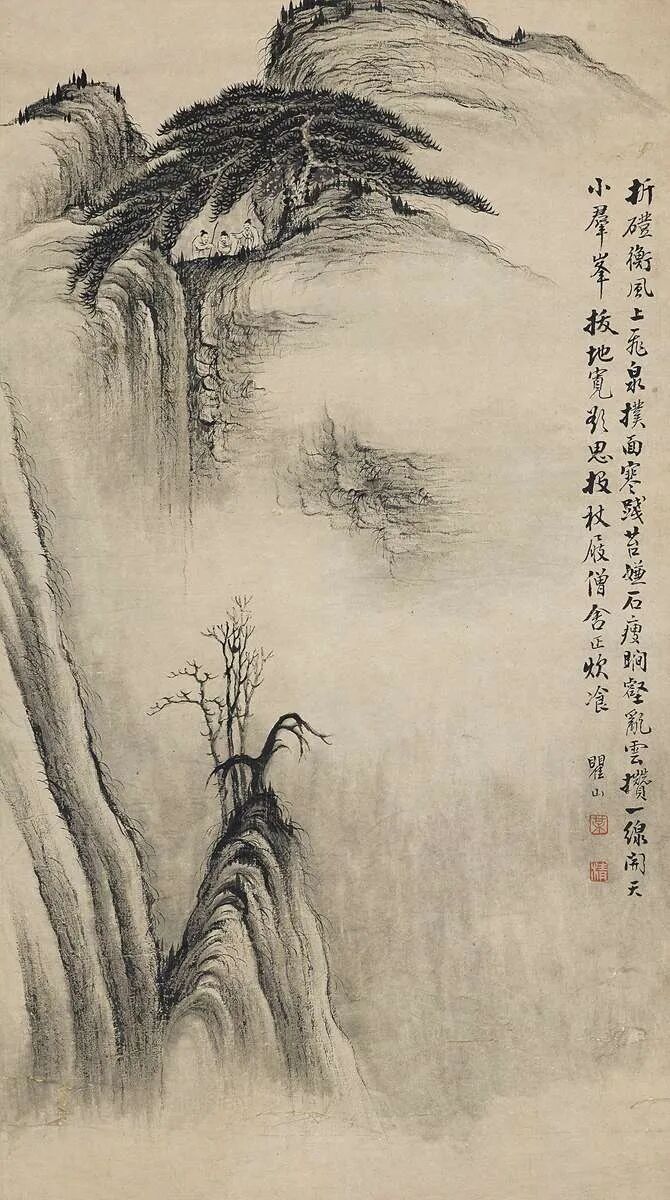 折磴衝風上飛泉撲面寒踐苔嫌石瘦瞰壑亂雲攢一線開天
小羣峯拔地寬思投杖屐僧舍正炊飡
瞿山